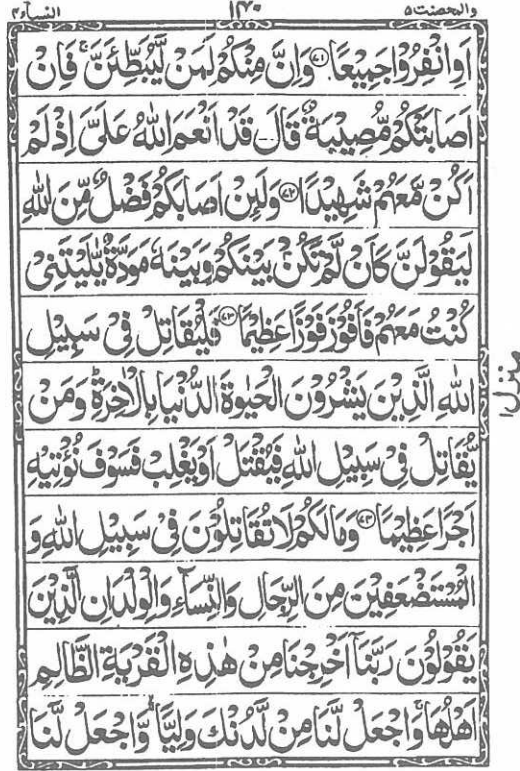 والمحصنت۵ ١٤٠ النسآء۴
اَوِانْفِرُوْاجَمِيْعًا ﴿٧١﴾ وَاِنَّ مِنْكُمْ لَمَنْ لَّيُبَطِّئَنَّ ۚ فَاِنْ
اَصَابَتْكُمْ مُّصِيْبَةٌ قَالَ قَدْ اَنْعَمَ اللّٰهُ عَلَىَّ اِذْ لَمْ
اَكُنْ مَّعَهُمْ شَهِيْدًا ﴿٧٢﴾ وَلَئِنْ اَصَابَكُمْ فَضْلٌ مِّنَ اللّٰهِ
لَيَقُوْلَنَّ كَاَنْ لَّمْ تَكُنْۢ بَيْنَكُمْ وَبَيْنَهٗ مَوَدَّةٌ يّٰلَيْتَنِىْ
كُنْتُ مَعَهُمْ فَاَفُوْزَ فَوْزًا عَظِيْمًا ﴿٧٣﴾ فَلْيُقَاتِلْ فِىْ سَبِيْلِ
اللّٰهِ الَّذِيْنَ يَشْرُوْنَ الْحَيٰوةَ الدُّنْيَا بِالْاٰخِرَةِ ؕ وَمَنْ
يُّقَاتِلْ فِىْ سَبِيْلِ اللّٰهِ فَيُقْتَلْ اَوْ يَغْلِبْ فَسَوْفَ نُؤْتِيْهِ
اَجْرًا عَظِيْمًا ﴿٧٤﴾ وَمَا لَكُمْ لَا تُقَاتِلُوْنَ فِىْ سَبِيْلِ اللّٰهِ وَ
الْمُسْتَضْعَفِيْنَ مِنَ الرِّجَالِ وَالنِّسَآءِ وَالْوِلْدَانِ الَّذِيْنَ
يَقُوْلُوْنَ رَبَّنَاۤ اَخْرِجْنَا مِنْ هٰذِهِ الْقَرْيَةِ الظَّالِمِ
اَهْلُهَا ۚ وَاجْعَلْ لَّنَا مِنْ لَّدُنْكَ وَلِيًّا ۙ وَّاجْعَلْ لَّنَا
منزل۱